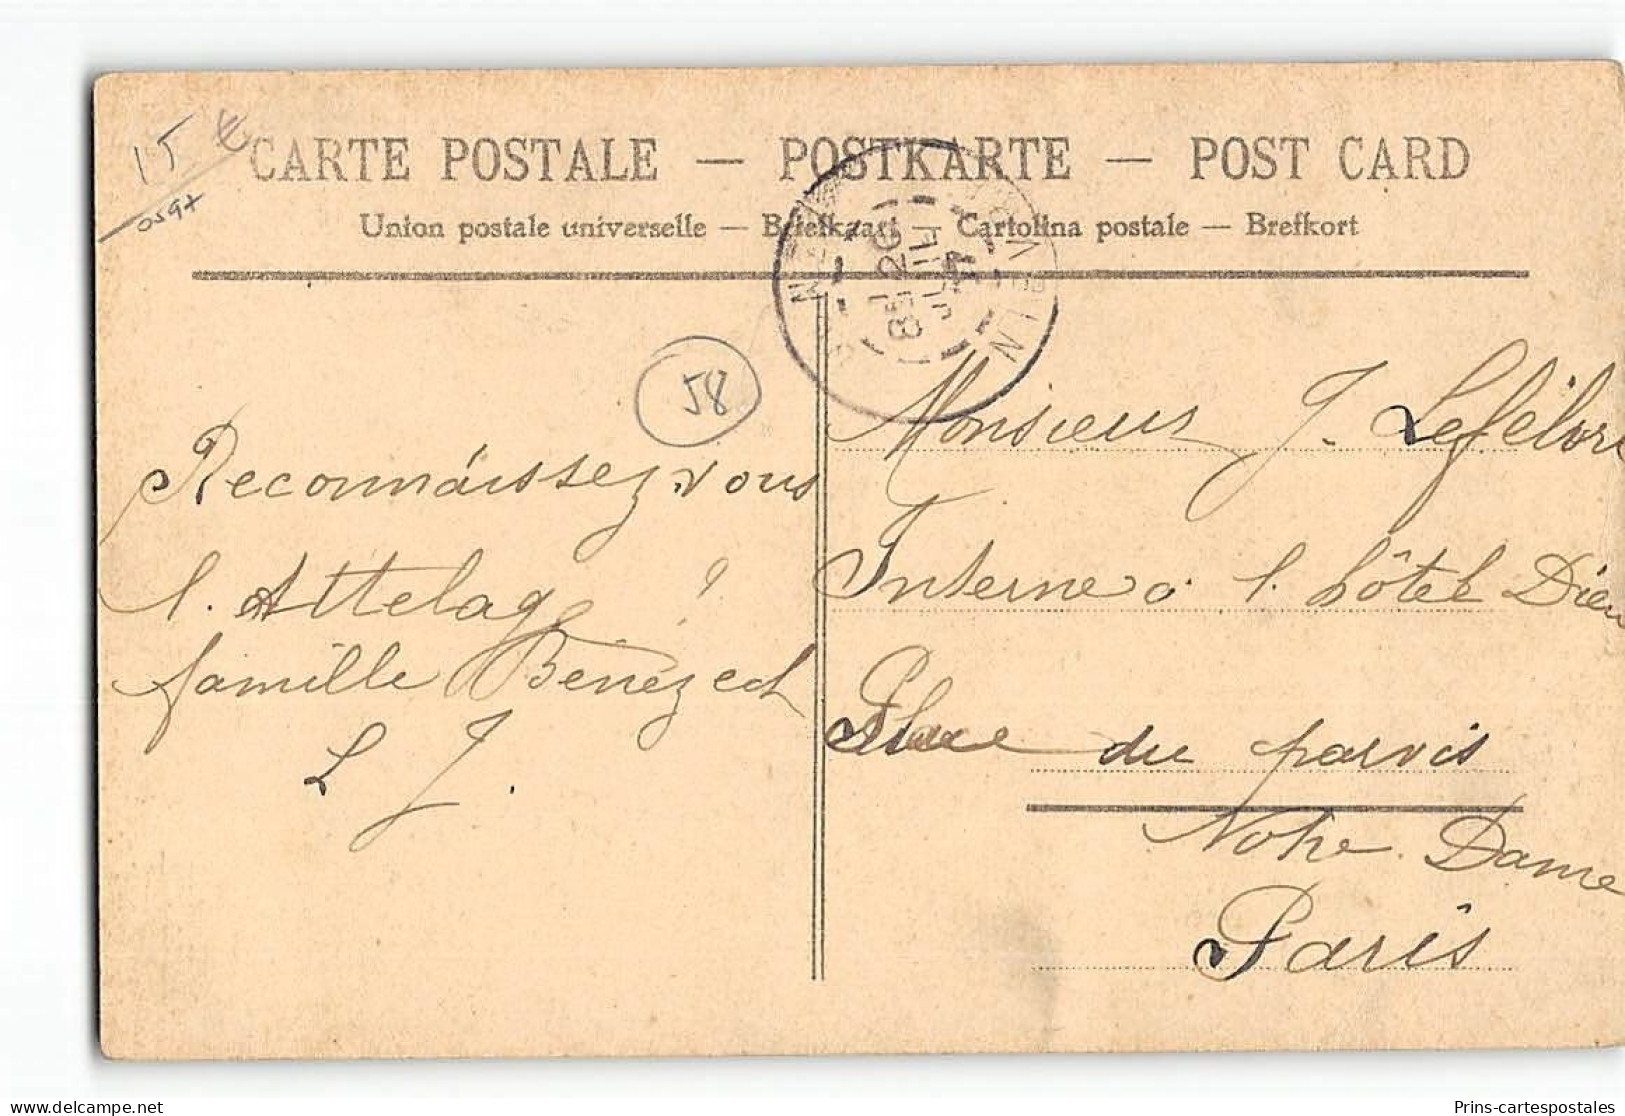 15 €
0597
CARTE POSTALE — POSTKARTE — POST CARD
Union postale universelle — Briefkaart — Cartolina postale — Brefkort
8E 26
JUIL
58
Reconnaissez vous
l'Attelage ?
famille Bénézech
L J.
Monsieur J. Lefébvre
Interne à l'hôtel Dieu
Place du parvis
Notre Dame
Paris
Prins-cartespostales
delcampe.net